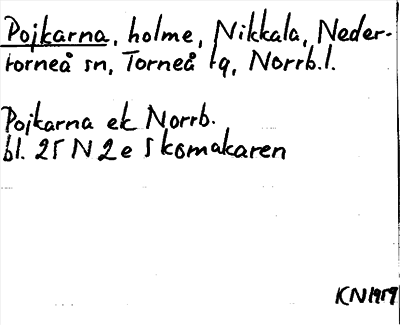 Pojkarna, holme, Nikkala, Neder-
torneå sn, Torneå tg, Norrb.l.
Pojkarna ek Norrb.
bl. 25 N 2 e Skomakaren
KN 1959